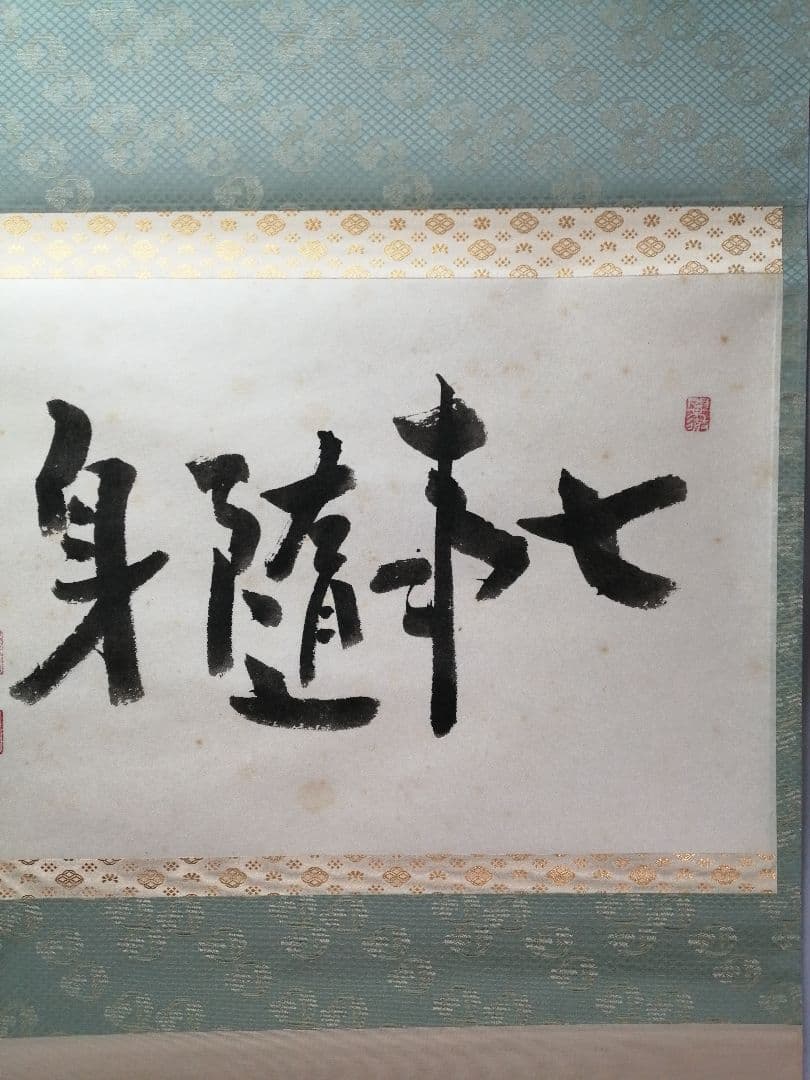 七事随身